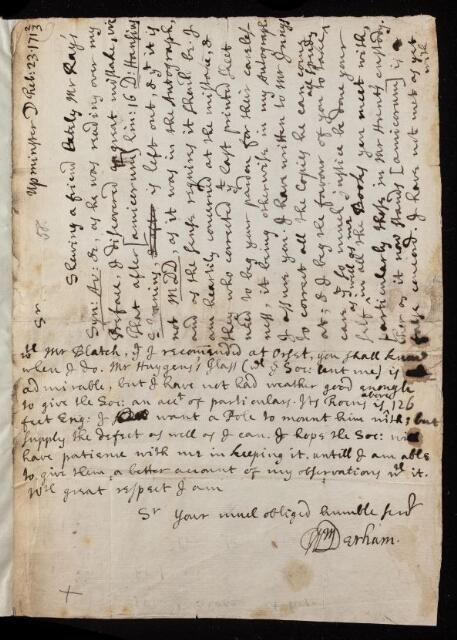 Upminster D Feb: 23. 1713
Sr
Shewing a friend lately Mr Rays
Syn: Av: &c, as he was reading over my
Preface, I discovered a great mistake, viz
that after [amicorum] lin: 16 D: Hans
is left out, & yt it is
not M.DD, as it was in the Autograph,
and as the sense requires it should be. I
am heartily concerned at the mistake, &
they who corrected ye last printed sheet
need to beg your pardon for their careless
ness, it being otherwise in my Autograph
I assure you I have written to Mr Innys
to correct all the Copies he can come
at; & I beg the favour of you to
can, yt so much Justice be done your
self in all the Books you meet with,
particularly those in Mr Hunts custody.
For as it now stands [amicorum] is
false concord. I have not met as yet
with
wth Mr Blatch, yt I recommended at Orset, you shall know
when I do. Mr Huygens's Glass (yt ye Soc: lent me) is
admirable, but I have not had weather good enough
to give the Soc: an acct of particulars. Its Focus is above 126
feet Eng: I want a Pole to mount him with; but
supply the defect as well as I can. I hope the Soc: will
have patience with me in keeping it, untill I am able
to give them a better account of my observations wth it.
Wth great respect I am
Sr Your much obliged humble servt
Wm Derham.